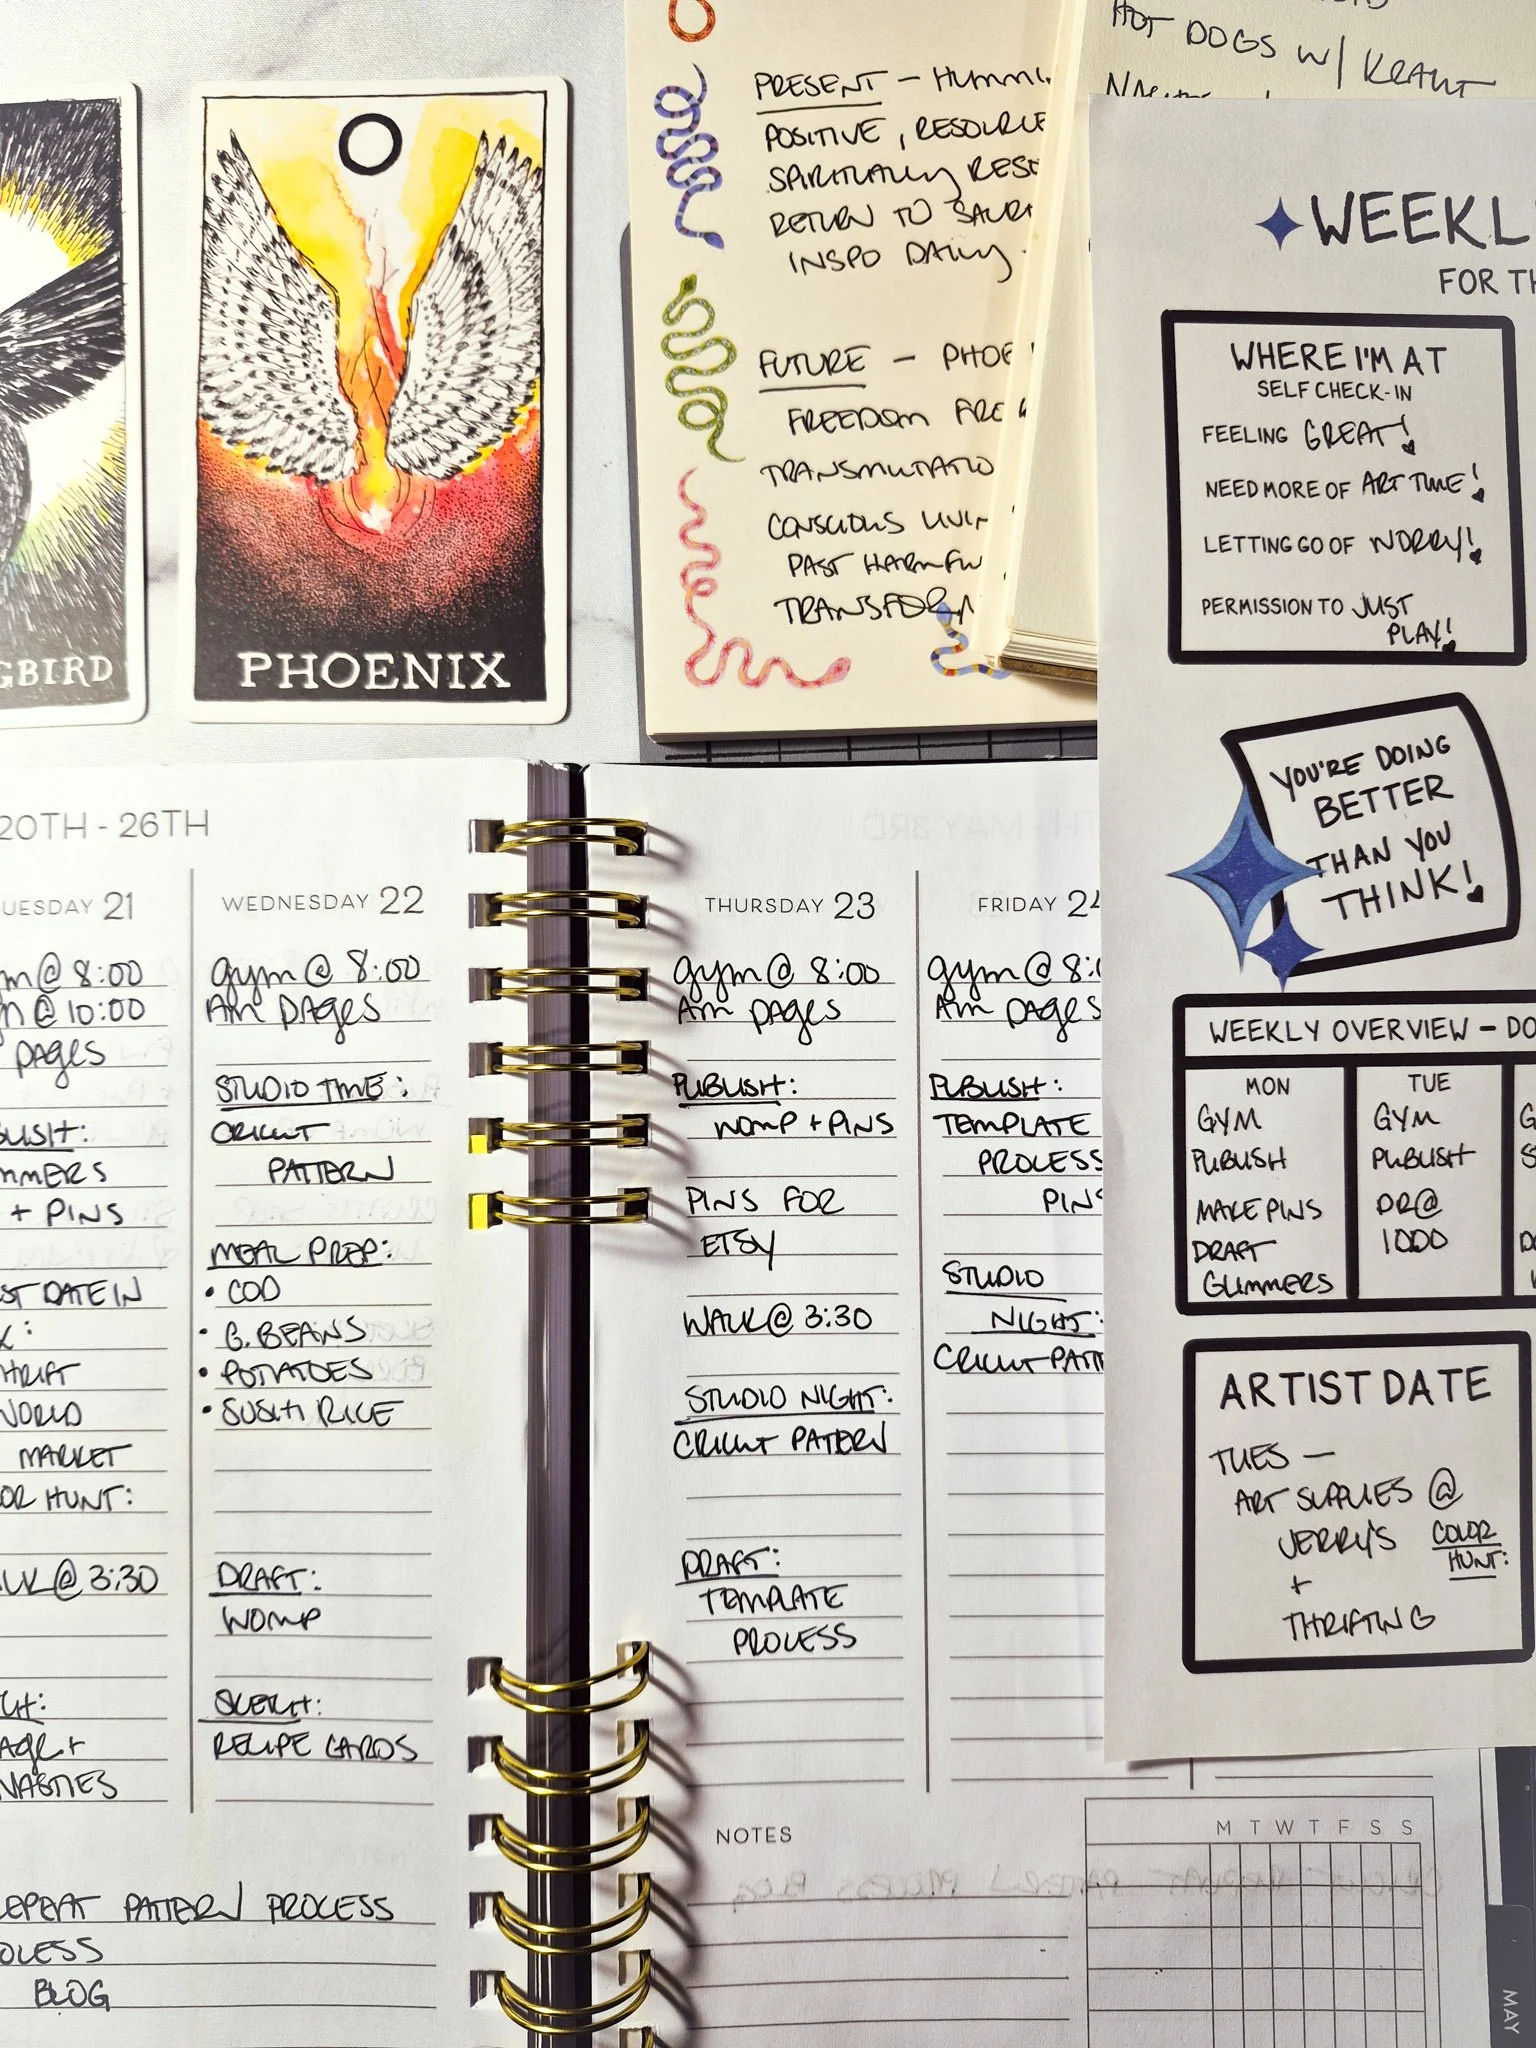 GBIRD
PHOENIX
PRESENT — HUMMI
POSITIVE, RESOURCE
SPIRITUALLY RES
RETURN TO
INSPO DAILY.
FUTURE — PHOE
FREEDOM
TRANSMUTATIO
CONSCIOUS LIVIN
PAST HARMFU
TRANSFORM
HOT DOGS W/ KRAUT
WEEKLY
FOR TH
WHERE I'M AT
SELF CHECK-IN
FEELING GREAT!
NEED MORE OF ART TIME!
LETTING GO OF WORRY!
PERMISSION TO JUST
PLAY!
YOU'RE DOING
BETTER
THAN YOU
THINK!
WEEKLY OVERVIEW – DO
MON
GYM
PUBLISH
MAKE PINS
DRAFT
GLIMMERS
TUE
GYM
PUBLISH
DR @
1000
ARTIST DATE
TUES —
ART SUPPLIES @
JERRY'S
+
THRIFTING
COLOR
HUNT:
20TH - 26TH
UESDAY 21
m @ 8:00
@ 10:00
PAGES
BLISH:
MMERS
+ PINS
ST DATE IN
HRIFT
WORLD
MARKET
OR HUNT:
ALK @ 3:30
WEDNESDAY 22
gym @ 8:00
AM PAGES
STUDIO TIME:
CRICUT
PATTERN
MEAL PREP:
• COD
• G. BEANS
• POTATOES
• SUSHI RICE
DRAFT:
WOMP
SKETCH:
RECIPE CARDS
EPEAT PATTERN PROCESS
OCESS
BLOG
THURSDAY 23
gym @ 8:00
AM PAGES
PUBLISH:
WOMP + PINS
PINS FOR
ETSY
WALK @ 3:30
STUDIO NIGHT:
CRICUT PATTERN
DRAFT:
TEMPLATE
PROCESS
FRIDAY 24
gym @ 8:0
AM PAGES
PUBLISH:
TEMPLATE
PROCESS
PINS
STUDIO
NIGHT:
CRICUT PATT
NOTES
M T W T F S S
MAY